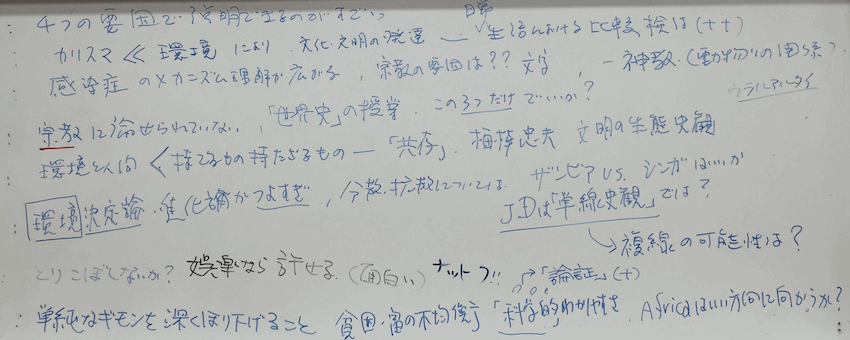 4つの要因で説明できるのがすごい
カリスマ ≪ 環境 により 文化・文明の発達 — 日常生活における比較検討 (++)
感染症 のメカニズム理解が広がる , 宗教の要因は?? 文字 , 一神教・(動物)の関係?
ウラルアルタイ
宗教に触せられていない , 「世界史」の授業 . この3つだけでいいか?
環境と人間 < 持てるもの持たざるもの — 「共存」. 梅棹忠夫 文明の生態史観
環境決定論・進化論がつよすぎ , 分散・拡散については ザンビア VS. シンガ
JDは「単線史観」では?
→ 複線の可能性は?
とりこぼしないか? 娯楽なら許せる (面白い) ナットク!! 「論証」(+)
単純なギモンを深くほり下げること 貧困・富の不均衡 「科学的」 Africaはいい方向に向かうか?